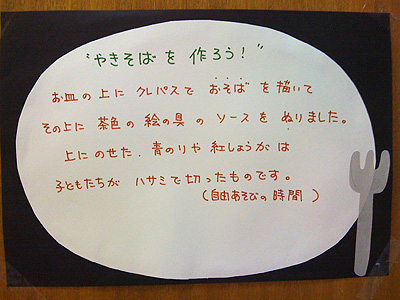 "やきそばを作ろう!"
お皿の上にクレパスでおそばを描いて
その上に茶色の絵の具のソースをぬりました。
上にのせた、青のりや紅しょうがは
子どもたちがハサミで切ったものです。
(自由あそびの時間)